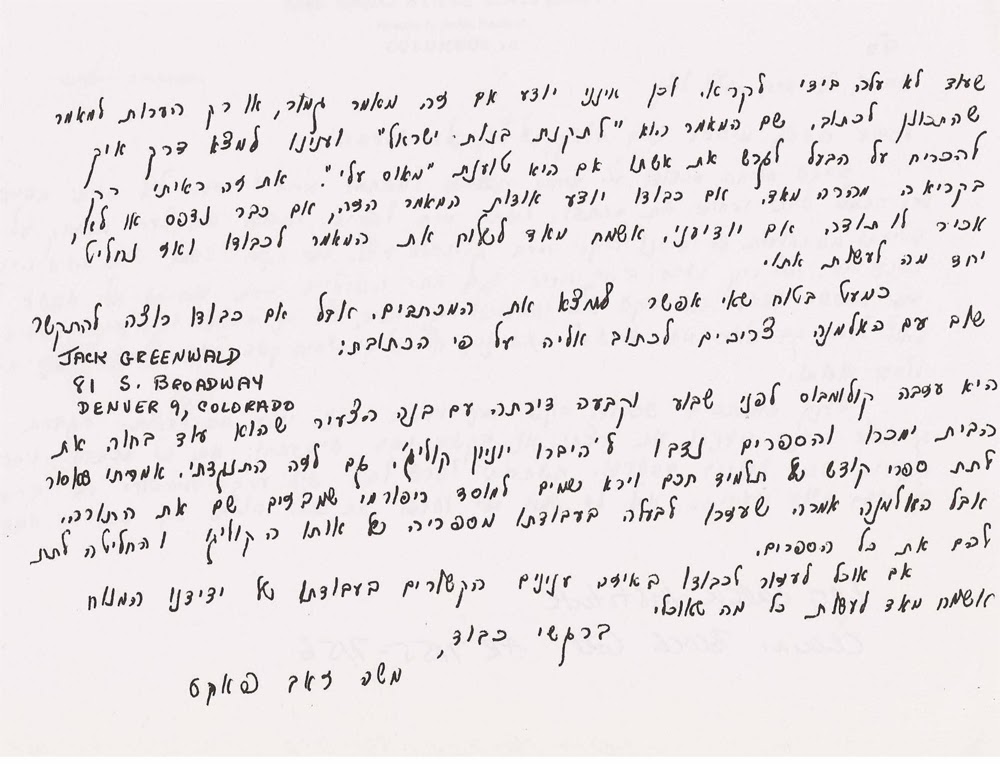 שעוד לא עלה בידי לקרא. ולכן אינני יודע אם זה מאמר גמור, או רק הערות למאמר
שהתכוונן לכתוב. שם המאמר הוא "לתקנת בנות-ישראל" וענינו למצא דרך איך
להכריח על הבעל לגרש את אשתו אם היא טוענת "מאוס עלי". את זה ראיתי רק
בקריאה מהרה מאד. אם כבודו יודע אודות המאמר הזה, אם כבר נדפס או לא,
אכיר לו תודה, אם יודיעני. אשמח מאד לשלוח את המאמר לכבודו ואז נחליט
יחד מה לעשות אתו.
כמעט בטוח שאי אפשר למצא את המכתבים. אבל אם כבודו רוצה להתקשר
שוב עם האלמנה צריכים לכתוב אליה על פי הכתובת:
JACK GREENWALD
81 S. BROADWAY
DENVER 9, COLORADO
היא עזבה קולומבוס לפני שבוע וקבעה דירתה עם בנה הצעיר שהוא עוד בחור את
הבית ימכרו והספרים נדבו ל"היברו יוניון קוליג'". גם לזה התנגדתי. אמרתי שאסור
לתת ספרי קודש של תלמיד חכם וירא שמים למוסד ריפורמי שמבזים שם את התורה.
אבל האלמנה אמרה שעזרו לבעלה בעבודתו מספריה של אותו הקוליג' והחליטה לתת
להם את כל הספרים.
אם אוכל לעזור לכבודו באיזה ענינים הקשורים בעבודתו של ידידנו המנוח
אשמח מאד לעשות כל מה שאוכל.
ברגשי כבוד,
משה זאב